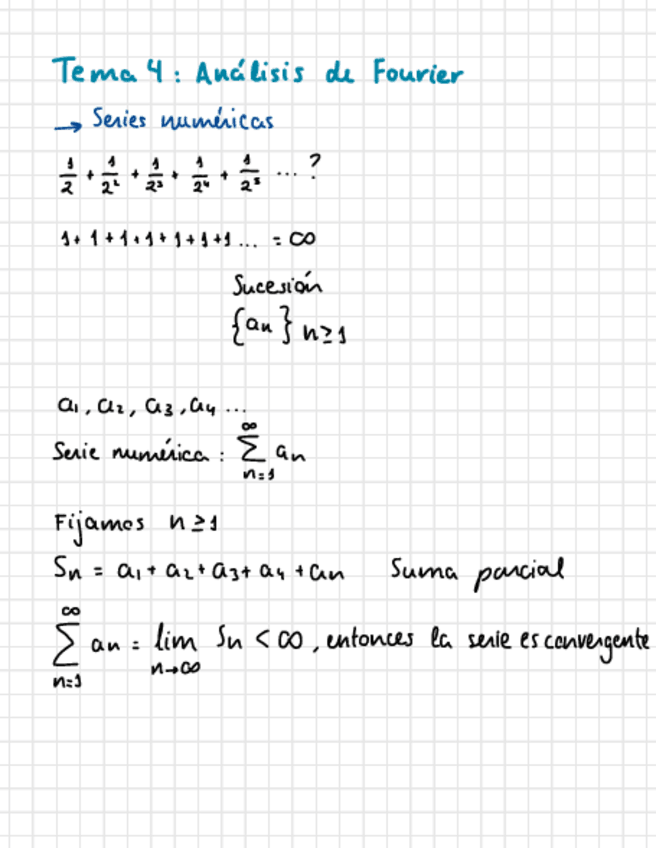 Tema 4: Análisis de Fourier
→ Series numéricas
1/2 + 1/2² + 1/2³ + 1/2⁴ + 1/2⁵ ... ?
1+1+1+1+1+1+1... = ∞
Sucesión
{an} n≥1
a₁, a₂, a₃, a₄ ...
Serie numérica: ∑_{n=1}^{∞} an
Fijamos n≥1
Sn = a₁ + a₂ + a₃ + a₄ + an Suma parcial
∑_{n=1}^{∞} an = lim_{n→∞} Sn < ∞, entonces la serie es convergente